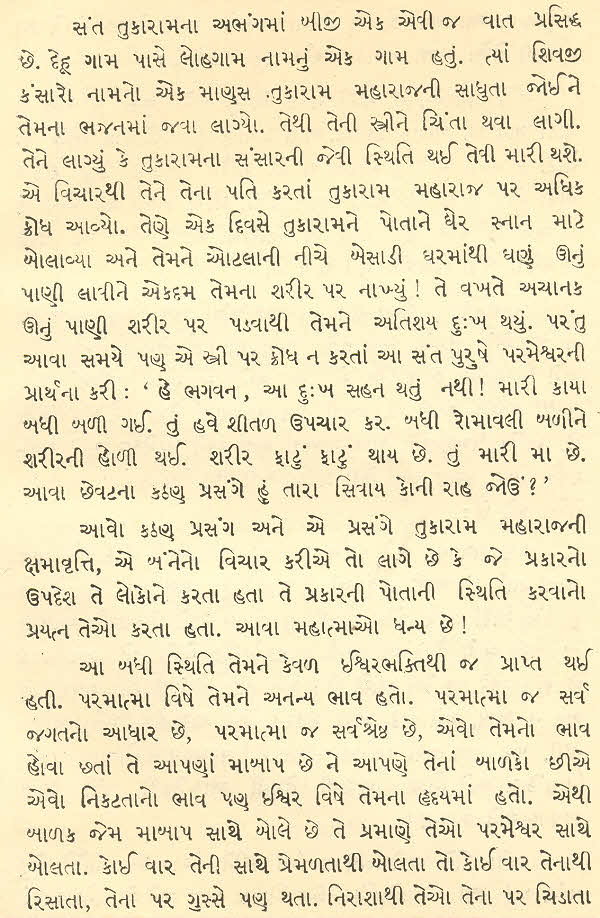 સંત તુકારામના અભંગમાં બીજી એક એવી જ વાત પ્રસિદ્ધ
છે. દેહૂ ગામ પાસે લોહગામ નામનું એક ગામ હતું. ત્યાં શિવજી
કંસારો નામનો એક માણસ તુકારામ મહારાજની સાધુતા જોઈને
તેમના ભજનમાં જવા લાગ્યો. તેથી તેની સ્ત્રીને ચિંતા થવા લાગી.
તેને લાગ્યું કે તુકારામના સંસારની જેવી સ્થિતિ થઈ તેવી મારી થશે.
એ વિચારથી તેને તેના પતિ કરતાં તુકારામ મહારાજ પર અધિક
ક્રોધ આવ્યો. તેણે એક દિવસે તુકારામને પોતાને ઘેર સ્નાન માટે
બોલાવ્યા અને તેમને ઓટલાની નીચે બેસાડી ઘરમાંથી ઘણું ઊનું
પાણી લાવીને એકદમ તેમના શરીર પર નાખ્યું! તે વખતે અચાનક
ઊનું પાણી શરીર પર પડવાથી તેમને અતિશય દુઃખ થયું. પરંતુ
આવા સમયે પણ એ સ્ત્રી પર ક્રોધ ન કરતાં આ સંત પુરુષે પરમેશ્વરની
પ્રાર્થના કરી : ‘ હે ભગવન, આ દુઃખ સહન થતું નથી! મારી કાયા
બધી બળી ગઈ. તું હવે શીતળ ઉપચાર કર. બધી રોમાવલી બળીને
શરીરની હોળી થઈ. શરીર ફાટું ફાટું થાય છે. તું મારી મા છે.
આવા છેવટના કઠણ પ્રસંગે હું તારા સિવાય કોની રાહ જોઉં?’
આવો કઠણ પ્રસંગ અને એ પ્રસંગે તુકારામ મહારાજની
ક્ષમાવૃત્તિ, એ બંનેનો વિચાર કરીએ તો લાગે છે કે જે પ્રકારનો
ઉપદેશ તે લોકોને કરતા હતા તે પ્રકારની પોતાની સ્થિતિ કરવાનો
પ્રયત્ન તેઓ કરતા હતા. આવા મહાત્માઓ ધન્ય છે!
આ બધી સ્થિતિ તેમને કેવળ ઈશ્વરભક્તિથી જ પ્રાપ્ત થઈ
હતી. પરમાત્મા વિષે તેમને અનન્ય ભાવ હતો. પરમાત્મા જ સર્વ
જગતનો આધાર છે, પરમાત્મા જ સર્વશ્રેષ્ઠ છે, એવો તેમનો ભાવ
હોવા છતાં તે આપણાં માબાપ છે ને આપણે તેનાં બાળકો છીએ
એવો નિકટતાનો ભાવ પણ ઈશ્વર વિષે તેમના હૃદયમાં હતો. એથી
બાળક જેમ માબાપ સાથે બોલે છે તે પ્રમાણે તેઓ પરમેશ્વર સાથે
બોલતા. કોઈ વાર તેની સાથે પ્રેમળતાથી બોલતા તો કોઈ વાર તેનાથી
રિસાતા, તેના પર ગુસ્સે પણ થતા. નિરાશાથી તેઓ તેના પર ચિડાતા